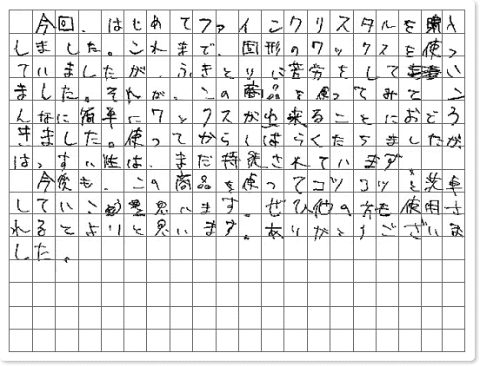 今回、はじめてファインクリスタルを購入
しました。これまで、固形のワックスを使っ
ていましたが、ふきとりに苦労をしてい
ました。それが、この商品を使ってみてこ
んなに簡単にワックスが出来ることにおどろ
きました。使ってからしばらくたちましたが、
はっすい性は、まだ持続されています
今後も、この商品を使ってコツコツと洗車
していこう思います。ぜひ他の方も使用さ
れるとよいと思います。ありがとうございま
した。